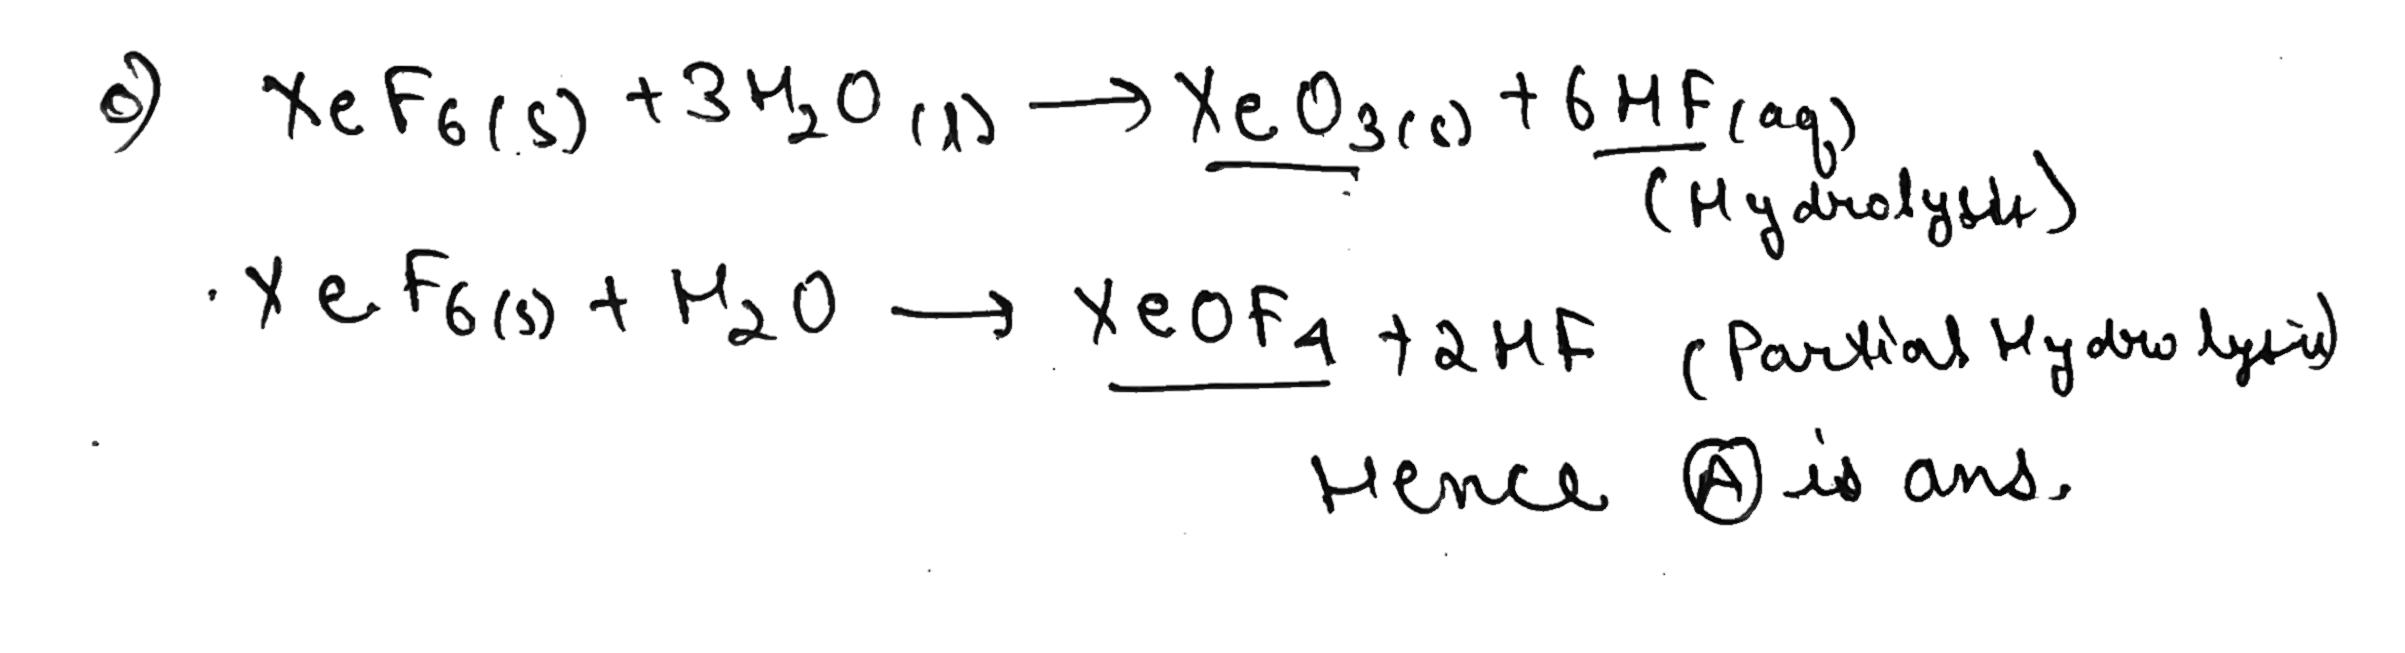 o) XeF₆(s) + 3H₂O(l) → XeO₃(s) + 6HF(aq)
(Hydrolysis)
XeF₆(s) + H₂O → XeOF₄ + 2HF (Partial Hydrolysis)
Hence Ⓐ is ans.